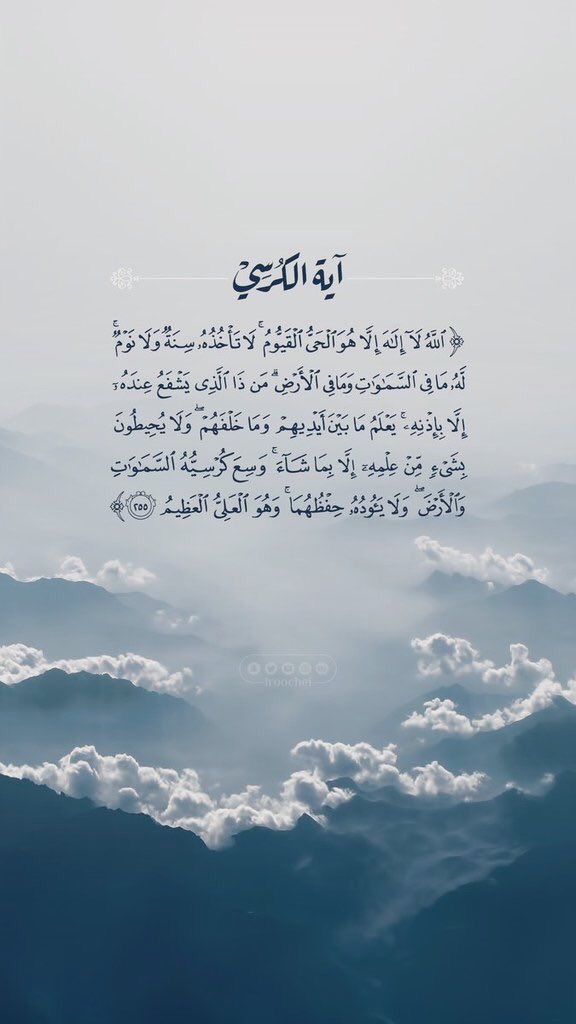 آية الكرسي
﴿ ٱللَّهُ لَآ إِلَٰهَ إِلَّا هُوَ ٱلْحَىُّ ٱلْقَيُّومُ ۚ لَا تَأْخُذُهُۥ سِنَةٌ وَلَا نَوْمٌ ۚ
لَّهُۥ مَا فِى ٱلسَّمَٰوَٰتِ وَمَا فِى ٱلْأَرْضِ ۗ مَن ذَا ٱلَّذِى يَشْفَعُ عِندَهُۥٓ
إِلَّا بِإِذْنِهِۦ ۚ يَعْلَمُ مَا بَيْنَ أَيْدِيهِمْ وَمَا خَلْفَهُمْ ۖ وَلَا يُحِيطُونَ
بِشَىْءٍ مِّنْ عِلْمِهِۦٓ إِلَّا بِمَا شَآءَ ۚ وَسِعَ كُرْسِيُّهُ ٱلسَّمَٰوَٰتِ
وَٱلْأَرْضَ ۖ وَلَا يَـُٔودُهُۥ حِفْظُهُمَا ۚ وَهُوَ ٱلْعَلِىُّ ٱلْعَظِيمُ ٢٥٥ ﴾